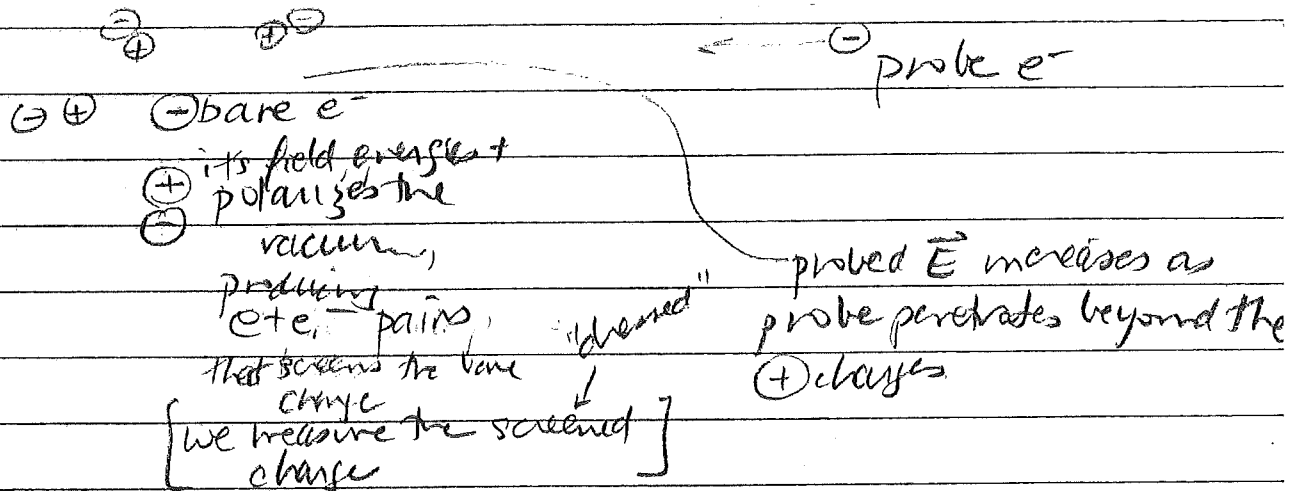 ⊖ ⊕ ⊕ ⊖ ⊖
probe e⁻
⊖ ⊕ ⊖ bare e⁻
it's field energies +
⊕ polarizes the
⊖ vacuum,
producing
e+e⁻ pairs,
that screens the bare
charge
"dressed"
[we measure the screened
charge]
probed E⃗ increases as
probe penetrates beyond the
⊕ charges